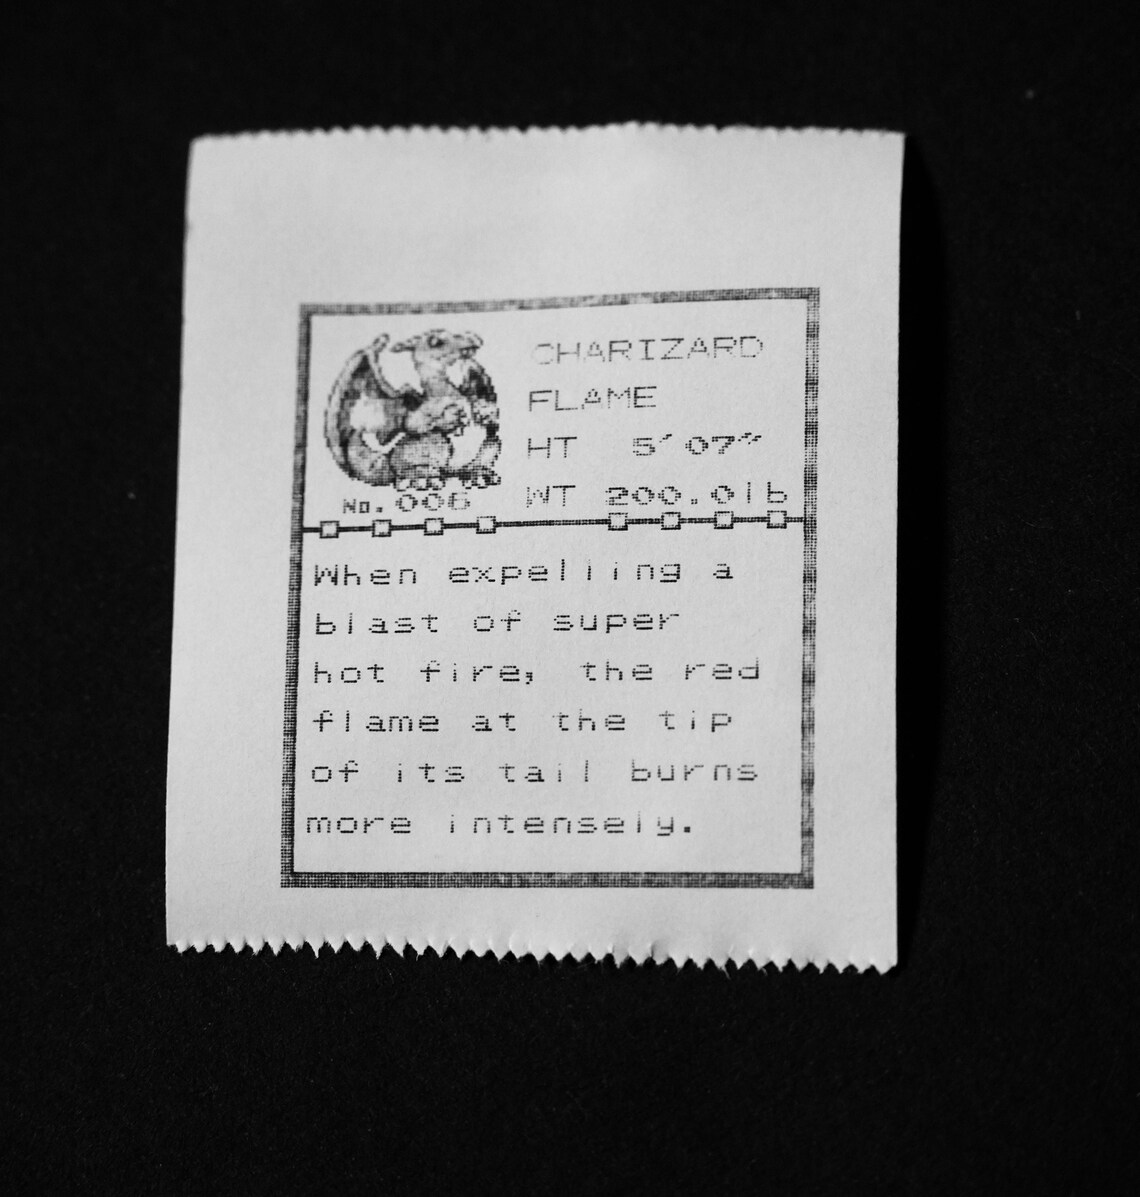 CHARIZARD
FLAME
HT 5′07″
WT 200.0lb
No.006
When expelling a
blast of super
hot fire, the red
flame at the tip
of its tail burns
more intensely.